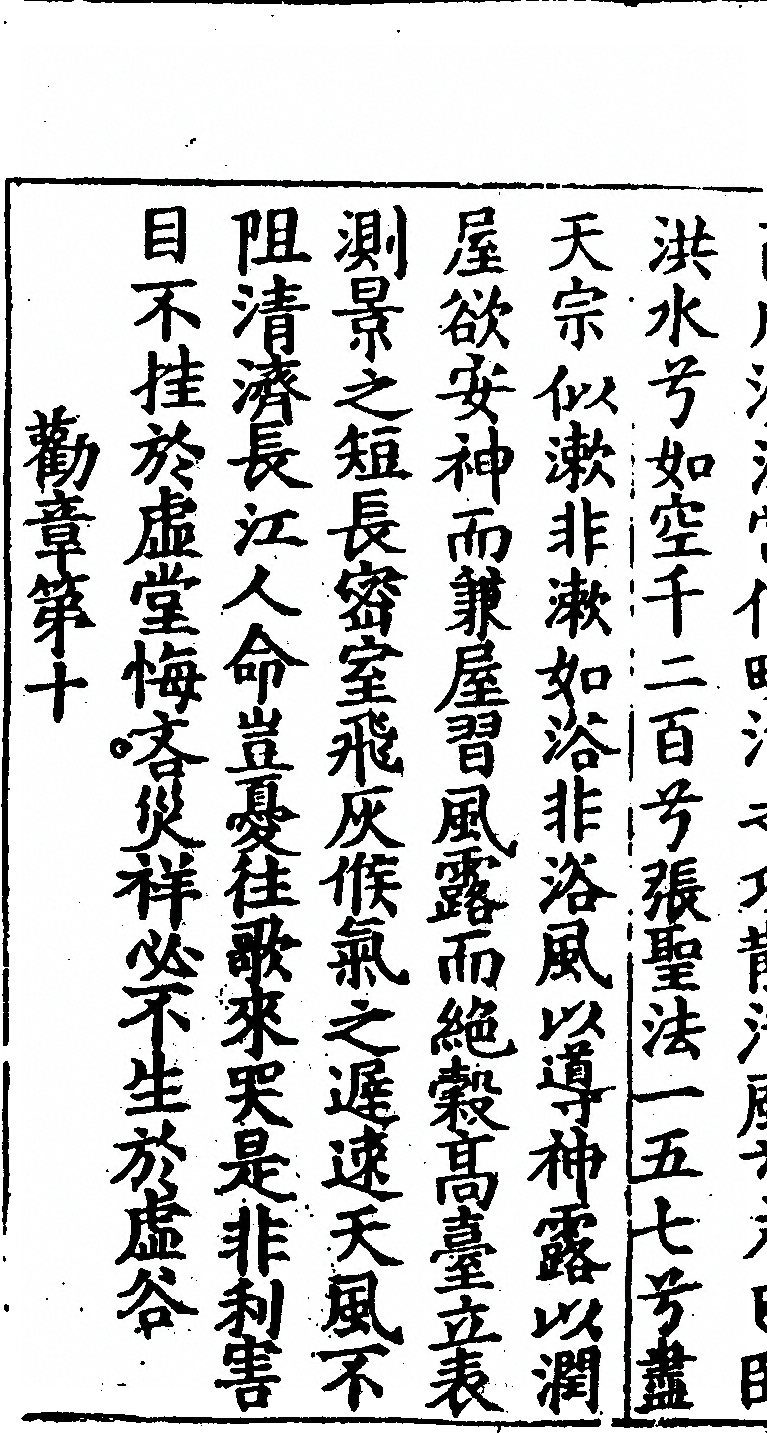 洪水兮如空千二百兮張聖法一五七兮盡
天宗似漱非漱如浴非浴風以導神露以潤
屋欲安神而兼屋習風露而絕穀髙臺立表
測景之短長密室飛灰候氣之遲速天風不
阻清濟長江人命豈憂往歌來哭是非利害
目不挂於虛堂悔吝災祥必不生於虛谷
勸章第十